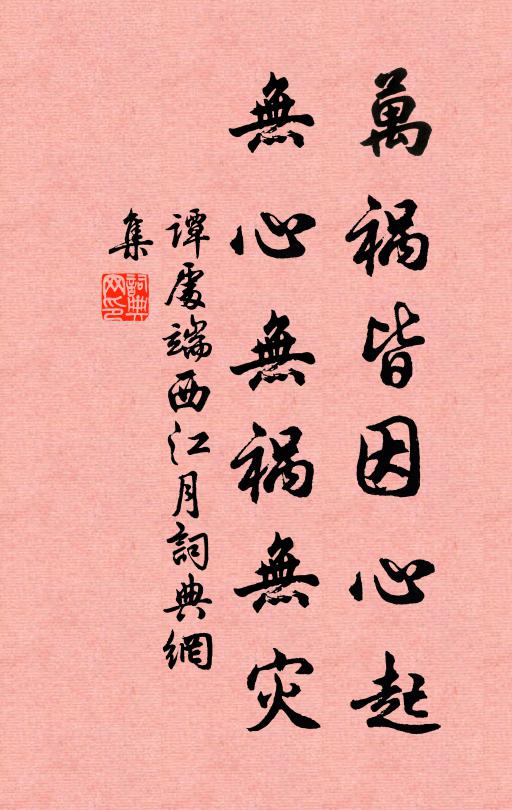 萬禍皆因心起
無心無禍無灾
谭處端西江月詞典網
集
詞典
网印